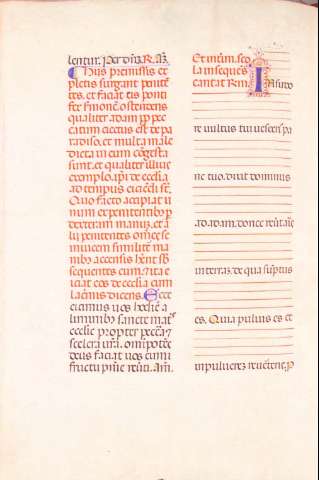 lentur. Per dnm. R. Am.
His premissis et
pletis surgant penite
tes. et faciat eis ponti
fex sermonem ostendens
qualiter adam pp pec
catum eiectus est de pa
radiso. et multa male
dicta in eum congesta
sunt. et qualiter illius
exemplo. ipsi de ecclesia
ad tempus eiciendi st.
Quo facto accipiat u
num ex penitentibus p
dexteram manum. et a
lii penitentes omnes se
inuicem similiter ma
nibus accensis hent sb
sequentes cum. et ita e
iciat eos de ecclesia cum
lacrimis dicens. Ecce
eicimus uos hodie a
liminibus sancte matris
ecclesie propter peccata et
scelera ura. omnipotens
deus faciat uos cum
fructu penitentie reuerti. Am.
Et interim. sco
la insequens
cantat Rm. In sudo
re uultus tui uesceris pa
ne tuo. dixit dominus
ad adam. donec reuertaris
in terram. de qua sumptus
es. Quia puluis es et
in puluerem reuerteris. P